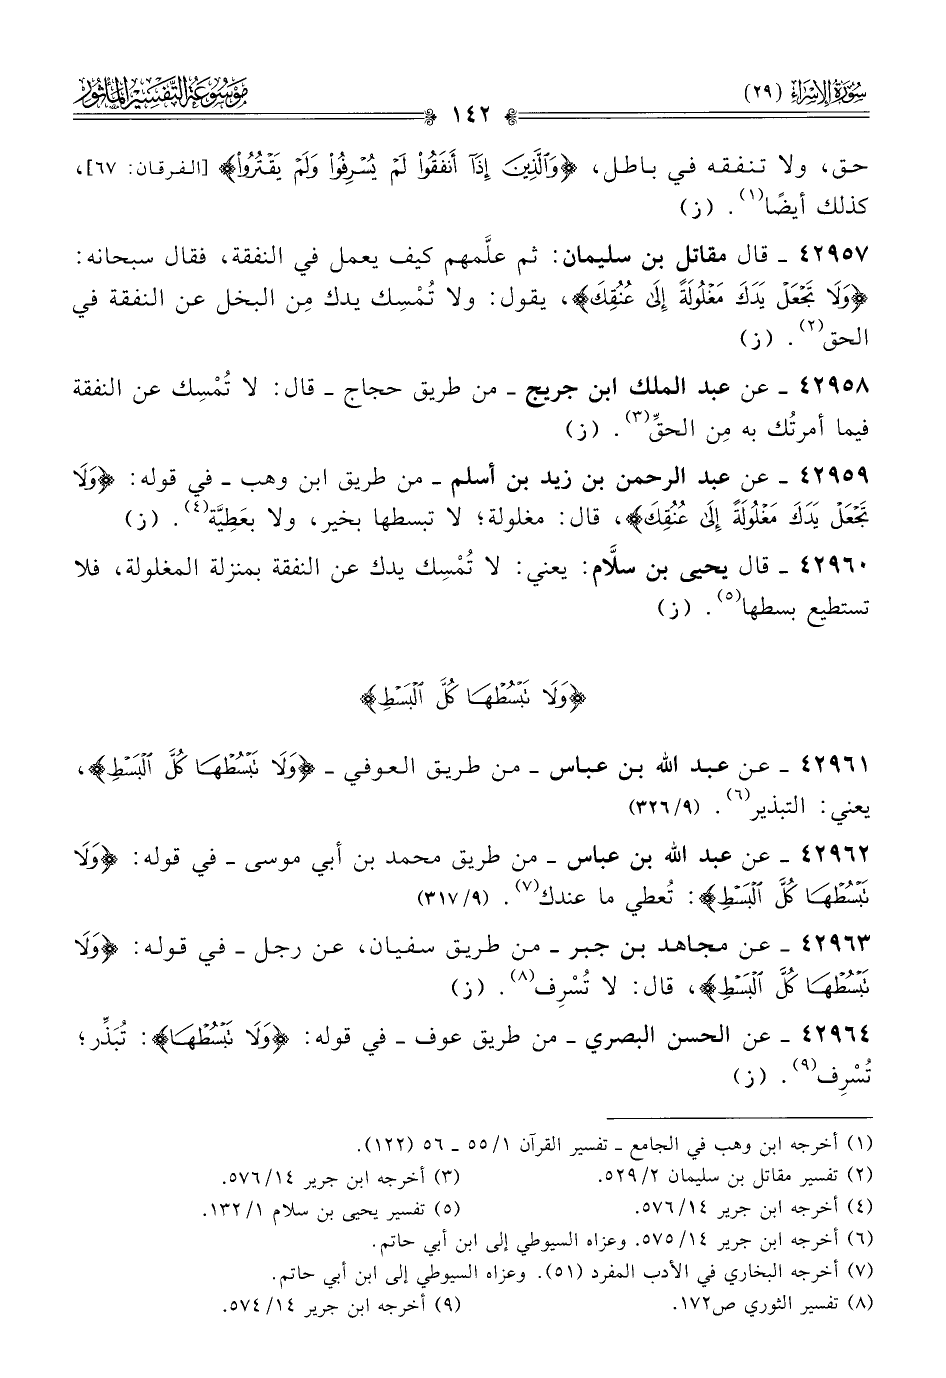 سُورَةُ الإِسْرَاءِ (٢٩)
١٤٢
مَوْسُوعَة التَّفْسِير المَأْثُور
حق، ولا تنفقه في باطل، ﴿وَٱلَّذِينَ إِذَآ أَنفَقُوا۟ لَمْ يُسْرِفُوا۟ وَلَمْ يَقْتُرُوا۟﴾ [الفرقان: ٦٧]،
كذلك أيضًا(١). (ز)
٤٢٩٥٧ ـ قال مقاتل بن سليمان: ثم علَّمهم كيف يعمل في النفقة، فقال سبحانه:
﴿وَلَا تَجْعَلْ يَدَكَ مَغْلُولَةً إِلَىٰ عُنُقِكَ﴾، يقول: ولا تُمْسِك يدك مِن البخل عن النفقة في
الحق(٢). (ز)
٤٢٩٥٨ ـ عن عبد الملك ابن جريج ـ من طريق حجاج ـ قال: لا تُمْسِك عن النفقة
فيما أمرتُك به مِن الحقِّ(٣). (ز)
٤٢٩٥٩ ـ عن عبد الرحمن بن زيد بن أسلم ـ من طريق ابن وهب ـ في قوله: ﴿وَلَا
تَجْعَلْ يَدَكَ مَغْلُولَةً إِلَىٰ عُنُقِكَ﴾، قال: مغلولة؛ لا تبسطها بخير، ولا بعَطِيَّة(٤). (ز)
٤٢٩٦٠ ـ قال يحيى بن سلَّام: يعني: لا تُمْسِك يدك عن النفقة بمنزلة المغلولة، فلا
تستطيع بسطها(٥). (ز)
﴿وَلَا تَبْسُطْهَا كُلَّ ٱلْبَسْطِ﴾
٤٢٩٦١ ـ عن عبد الله بن عباس ـ من طريق العوفي ـ ﴿وَلَا تَبْسُطْهَا كُلَّ ٱلْبَسْطِ﴾،
يعني: التبذير(٦). (٣٢٦/٩)
٤٢٩٦٢ ـ عن عبد الله بن عباس ـ من طريق محمد بن أبي موسى ـ في قوله: ﴿وَلَا
تَبْسُطْهَا كُلَّ ٱلْبَسْطِ﴾: تُعطي ما عندك(٧). (٣١٧/٩)
٤٢٩٦٣ ـ عن مجاهد بن جبر ـ من طريق سفيان، عن رجل ـ في قوله: ﴿وَلَا
تَبْسُطْهَا كُلَّ ٱلْبَسْطِ﴾، قال: لا تُسْرِف(٨). (ز)
٤٢٩٦٤ ـ عن الحسن البصري ـ من طريق عوف ـ في قوله: ﴿وَلَا تَبْسُطْهَا﴾: تُبَذِّر؛
تُسْرِف(٩). (ز)
(١) أخرجه ابن وهب في الجامع ـ تفسير القرآن ٥٥/١ ـ ٥٦ (١٢٢).
(٢) تفسير مقاتل بن سليمان ٥٢٩/٢. (٣) أخرجه ابن جرير ٥٧٦/١٤.
(٤) أخرجه ابن جرير ٥٧٦/١٤. (٥) تفسير يحيى بن سلام ١٣٢/١.
(٦) أخرجه ابن جرير ٥٧٥/١٤. وعزاه السيوطي إلى ابن أبي حاتم.
(٧) أخرجه البخاري في الأدب المفرد (٥١). وعزاه السيوطي إلى ابن أبي حاتم.
(٨) تفسير الثوري ص١٧٢. (٩) أخرجه ابن جرير ٥٧٤/١٤.